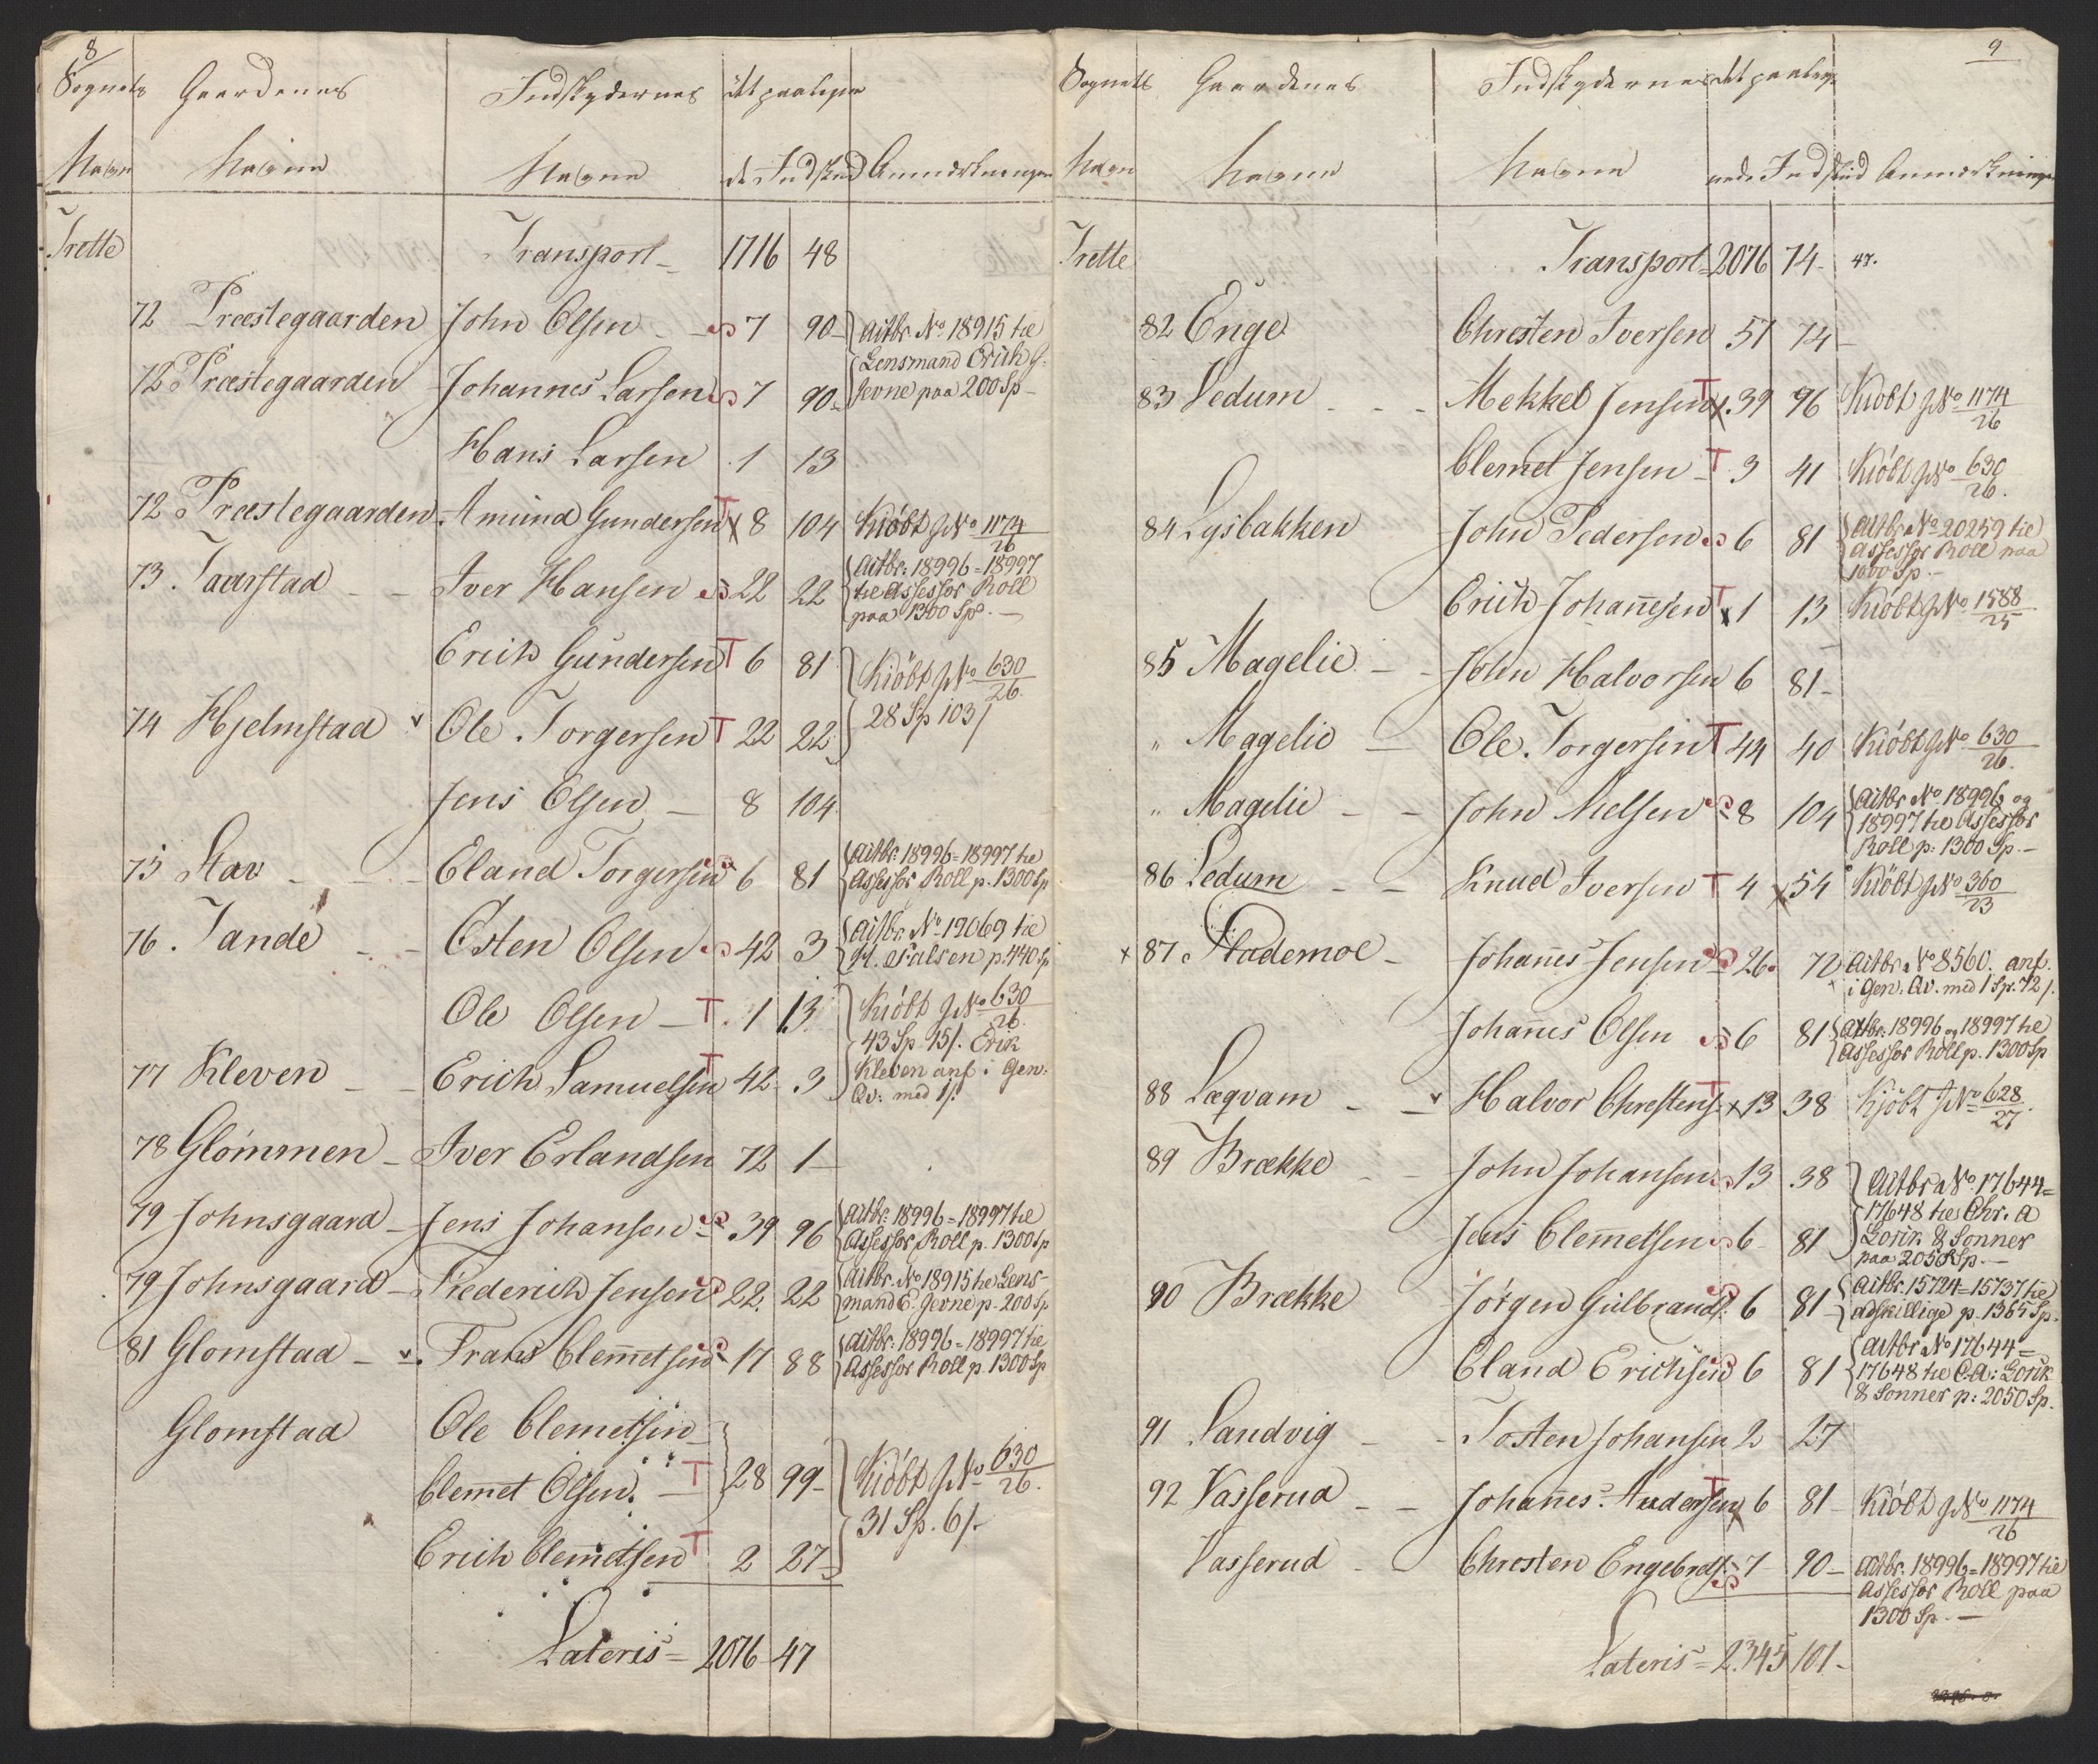 8
Sognets Gaardenes Indskydernes det paaløben
Navn Navne Navne de Indskud Anmærkninger
Trette Transport 1716 48
72 Præstegaarden John Olsen S 7 90 Aitbr. No 18915 til
Lensmand Erich G.
72 Præstegaarden Johannes Larsen S 7 90 Jevne paa 200 Sp
Hans Larsen 1 13
72 Præstegaarden Amund Gundersen T x 8 104 Kiøbt J No 1174/26
73 Taarstad Iver Hansen S 22 22 Aitbr: 18996=18997
til Assessor Roll
paa 1300 Sp.
Erich Gundersen T 6 81 Kiøbt J No 630/26.
74 Hjelmstad v Ole Torgersen T 22 22 28 Sp 103/
Jens Olsen 8 104
75 Stav Eland Torgersen S 6 81 Aitbr: 18996=18997 til
Assessor Roll p. 1300 Sp
76 Tande Østen Olsen S 42 3 Aitbr. No 19069 til
H. Falsen p. 440 Sp
Ole Olsen T 1 13 Kiøbt J No 630/26.
43 Sp 15/. Erik
77 Kleven Erich Samuelsen T 42 3 Kleven anf i Gen:
Qv: med 1/.
78 Glømmen Iver Erlandsen 72 1
79 Johnsgaard Jens Johansen S 39 96 Aitbr: 18996=18997 til
Assessor Roll p. 1300 Sp
79 Johnsgaard Frederich Jensen S 22 22 Aitbr. No 18915 til Lens-
mand E. Jevne p. 200 Sp
81 Glomstad v Frans Clem̅etsen S 17 88 Aitbr: 18996=18997 til
Assessor Roll p. 1300 Sp
Glomstad Ole Clemetsen
Clem̅et Olsen T 28 99 Kiøbt J No 630/26.
31 Sp. 6/.
Erich Clem̅etsen T 2 27
Lateris = 2076 47
9
Sognets Gaardenes Indskydernes det paaløb
Navn Navne Navne ende Indskud Anmærkninger
Trette Transport 2076 74 47.
82 Enge Chresten Iversen 57 74
83 Ledum Mekkel Jensen T x 39 96 Kiøbt J No 1174/26
Clemet Jensen T 3 41 Kiøbt J No 630/26.
84 Lysbakken John Pedersen S 6 81 Aitbr No 20259 til
Assessor Roll paa
1000 Sp.
Erich Johan̅esen T x 1 13 Kiøbt J No 1588/25
85 Magelie John Halvorsen 6 81
" Magelie Ole Torgersen T 44 40 Kiøbt J No 630/26.
" Magelie John Nielsen S 8 104 Aitbr No 18996 og
18997 til Assessor
Roll p. 1300 Sp.
86 Ledum Knud Iversen T 4 x 54 Kiøbt J No 360/23
x 87 Stademoe Johan̅es Jensen S 26 72 Aitbr No 8560. anf.
i Gen: Qv. med 1 Sp. 72/.
Johan̅es Olsen S 6 81 Aitbr: 18996 og 18997 til
Assessor Roll p. 1300 Sp
88 Lægvam v Halvor Chrestens. T x 13 38 Kjøbt J No 628/27.
89 Brække John Johansen S 13 38 Aitbr No 17644=
17648 til Chr. A
Jens Clem̅etsen S 6 81 Lorik & Sonner
paa 2050 Sp.
90 Brække Jørgen Gulbrands. S 6 81 Aitbr: 15724=15737 til
adskillige p. 1365 Sp.
Eland Erichsen S 6 81 Aitbr No 17644=
17648 til C. A: Lorik
& Sonner p: 2050 Sp.
91 Sandvig Tosten Johansen 2 27
92 Vasserud Johan̅es Andersen T x 6 81 Kiøbt J No 1174/26
Vasserud Chresten Engebrets. S 7 90 Aitbr. 18996=18997 til
Assessor Roll paa
1300 Sp.
Lateris = 2345 101